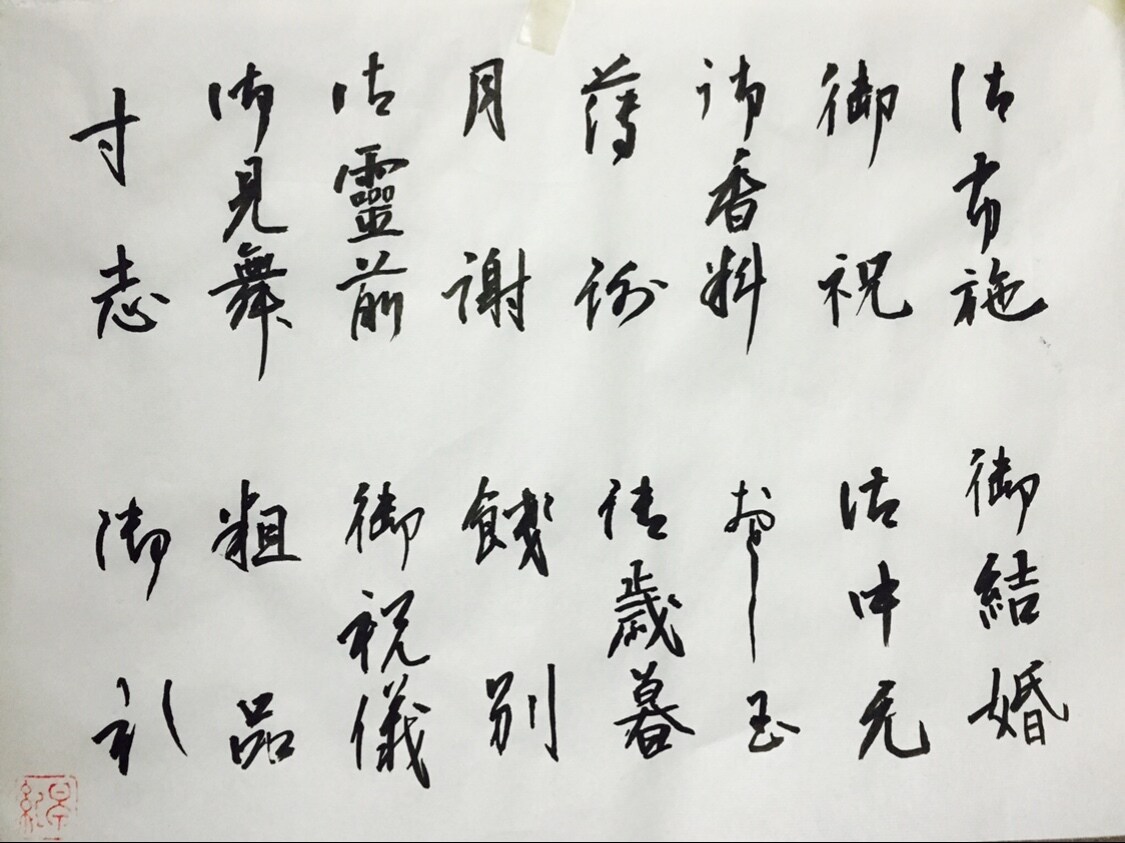 御布施
御祝
御香料
薄謝
月謝
御靈前
御見舞
寸志
御結婚
御中元
お年玉
御歳暮
餞別
御祝儀
粗品
御礼